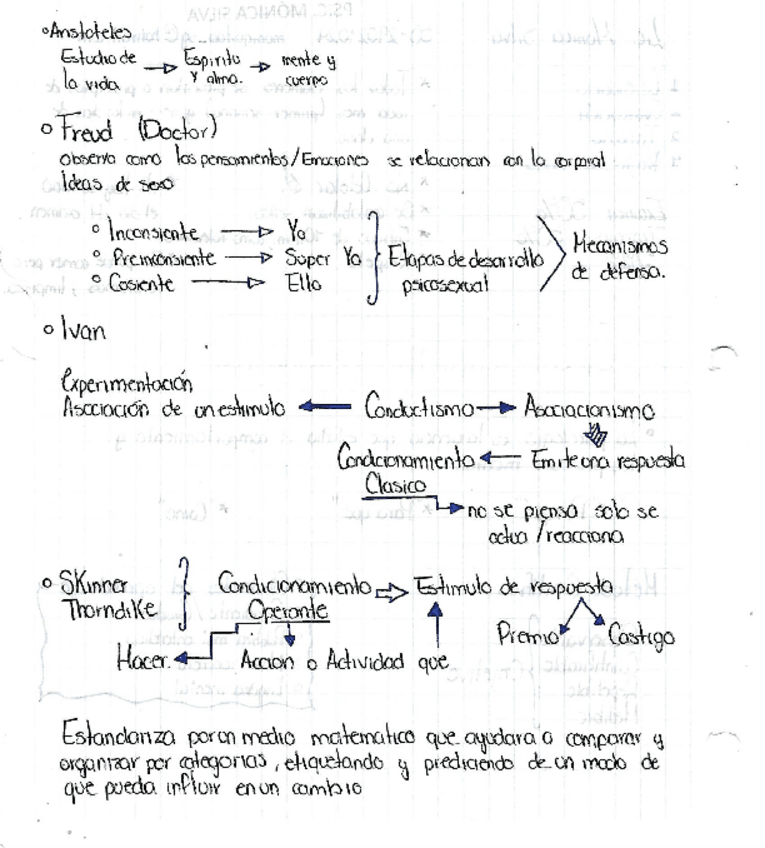 Aristoteles
Estudio de → Espiritu → mente y
la vida y alma. cuerpo
Freud (Doctor)
observo como los pensamientos/Emociones se relacionan con lo corporal
Ideas de sexo
Inconsiente → Yo
Preinconsiente → Super Yo
Cosiente → Ello
Etapas de desarrollo
psicosexual
Mecanismos
de defensa.
Ivan
Experimentación
Asociación de un estimulo ← Conductismo → Asociacionismo
Condicionamiento ← Emite una respuesta
Clasico
→ no se piensa. solo se
actua / reacciona
Skinner
Thorndike
Condicionamiento ⇒ Estimulo de respuesta
Operante
Premio Castigo
Hacer. ← Accion o Actividad que
Estandariza por un medio matematico que ayudara a comparar y
organizar por categorias, etiquetando y prediciendo de un modo de
que pueda influir en un cambio